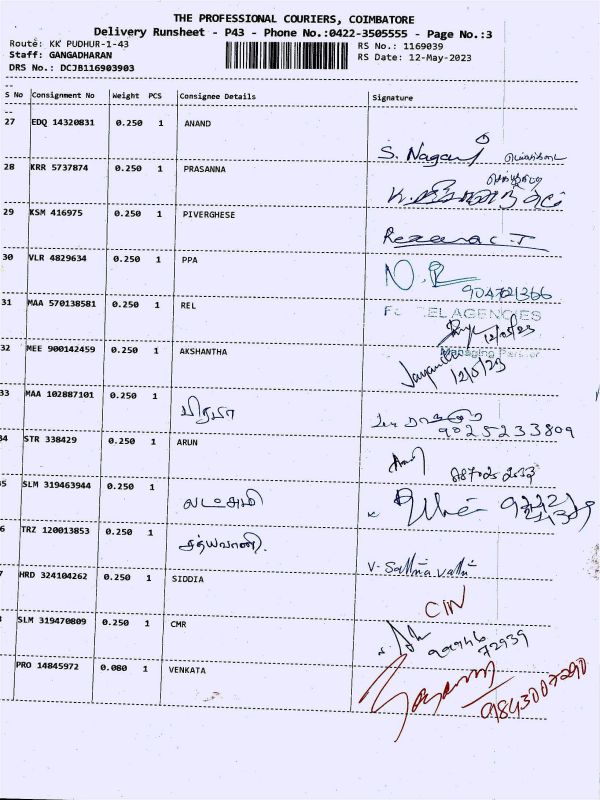 THE PROFESSIONAL COURIERS, COIMBATORE
Delivery Runsheet - P43 - Phone No.:0422-3505555 - Page No.:3
Route: KK PUDHUR-1-43
RS No.: 1169039
Staff: GANGADHARAN
RS Date: 12-May-2023
DRS No.: DCJB116903903
S No Consignment No Weight PCS Consignee Details Signature
27 EDQ 14320831 0.250 1 ANAND
S. Nagaraj
28 KRR 5737874 0.250 1 PRASANNA
29 KSM 416975 0.250 1 PIVERGHESE
30 VLR 4829634 0.250 1 PPA
N. R
31 MAA 570138581 0.250 1 REL
TEL AGENCIES
12/05/23
32 MEE 900142459 0.250 1 AKSHANTHA
Managing Partner
12/5/23
33 MAA 102887101 0.250 1
9025233809
34 STR 338429 0.250 1 ARUN
5 SLM 319463944 0.250 1 லட்சுமி
6 TRZ 120013853 0.250 1 சத்யவாணி.
V. Sathia vathi
7 HRD 324104262 0.250 1 SIDDIA
CIN
SLM 319470809 0.250 1 CMR
72939
PRO 14845972 0.080 1 VENKATA
9843007290